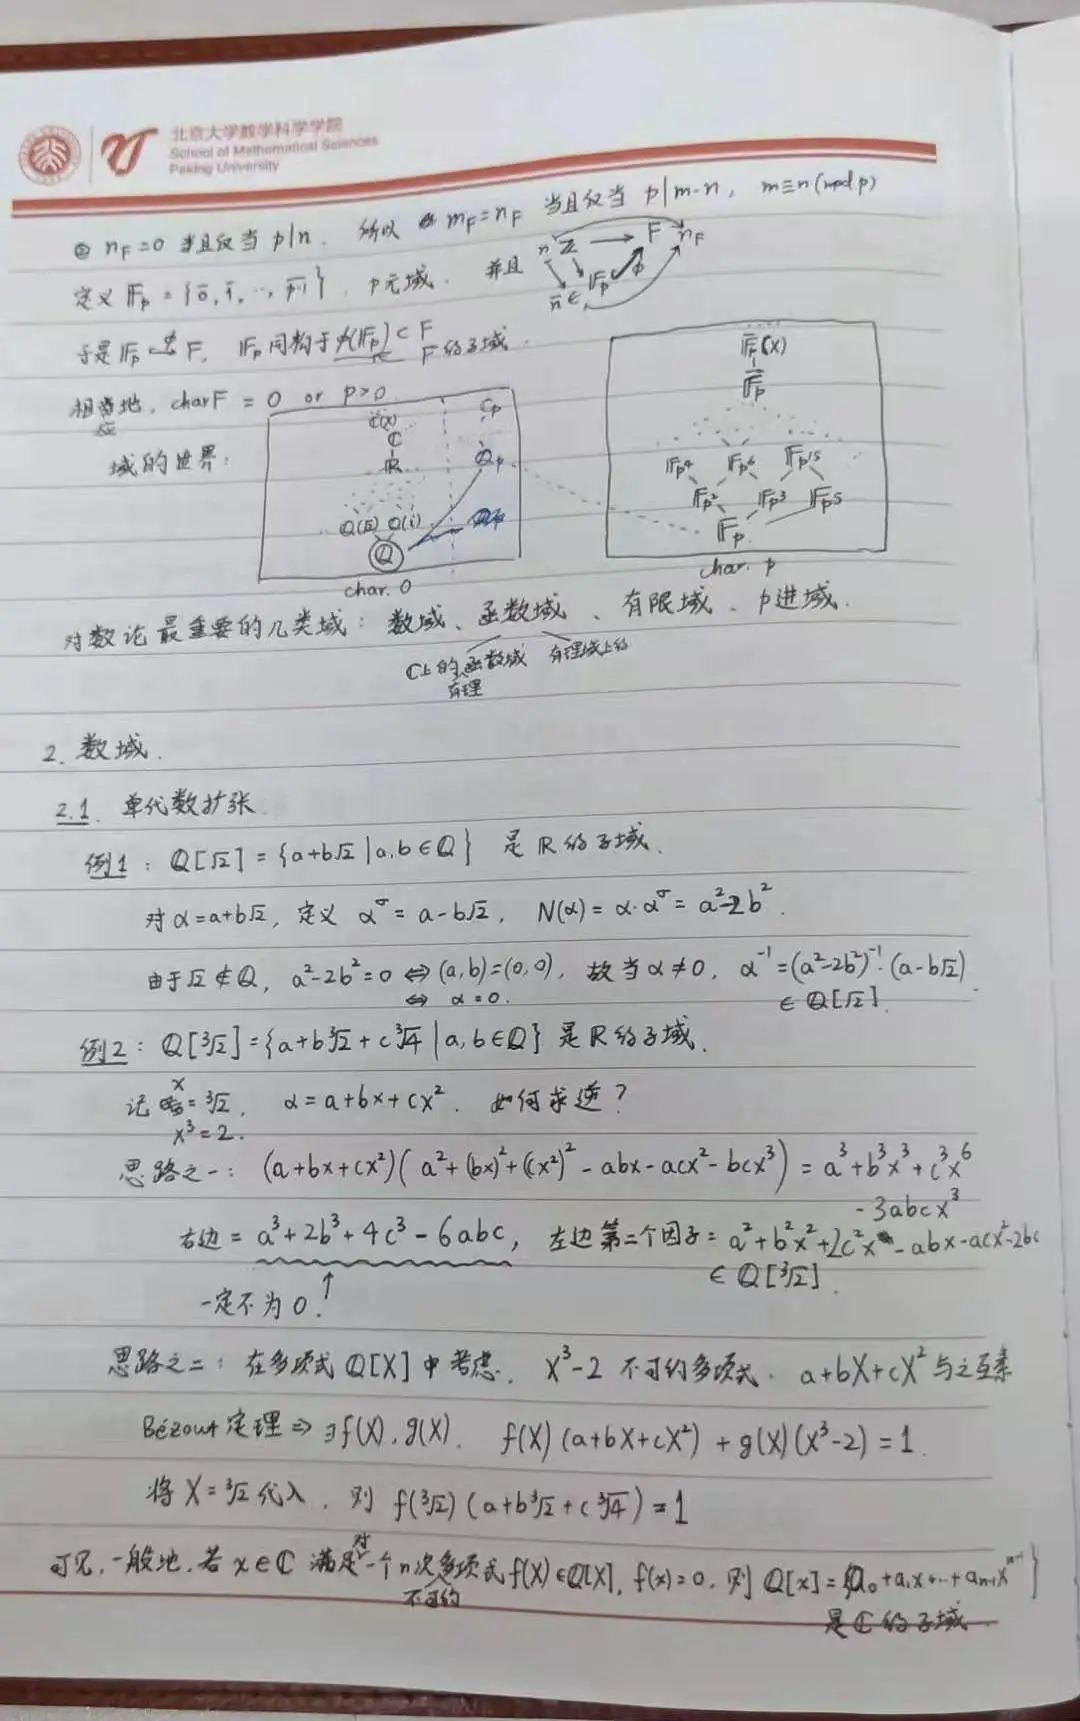 北京大学数学科学学院
School of Mathematical Sciences
Peking University
② n_F=0 当且仅当 p|n. 所以 m_F=n_F 当且仅当 p|m-n, m≡n(mod p)
n ℤ → F n_F
定义 𝔽_p = {0̄, 1̄, ..., p̄-1̄}, p元域. 并且
n̄ ∈ 𝔽_p φ
于是 𝔽_p ↪ F, 𝔽_p 同构于 φ(𝔽_p) ⊂ F
F的子域.
相应地, char F = 0 or p>0
域的世界:
ℂ(x)
ℂ
ℝ
ℚ(√2) ℚ(i)
ℚ
ℂ_p
ℚ_p
char. 0
𝔽̄_p(X)
𝔽̄_p
𝔽_p⁴ 𝔽_p⁶ 𝔽_p¹⁵
𝔽_p² 𝔽_p³ 𝔽_p⁵
𝔽_p
char. p
对数论最重要的几类域: 数域、函数域、有限域、p进域.
ℂ上的有理函数域 有理域上的
2. 数域.
2.1. 单代数扩张.
例1: ℚ[√2] = {a+b√2 | a,b∈ℚ} 是ℝ的子域.
对α=a+b√2, 定义 α^σ = a-b√2, N(α) = α·α^σ = a²-2b².
由于√2∉ℚ, a²-2b²=0 ⇔ (a,b)=(0,0), 故当α≠0, α⁻¹=(a²-2b²)⁻¹·(a-b√2)
⇔ α=0. ∈ℚ[√2].
例2: ℚ[³√2]={a+b³√2+c³√4 | a,b∈ℚ} 是ℝ的子域.
记 x=³√2, α=a+bx+cx². 如何求逆?
x³=2.
思路之一: (a+bx+cx²)(a²+(bx)²+(cx²)²-abx-acx²-bcx³) = a³+b³x³+c³x⁶
-3abcx³
右边 = a³+2b³+4c³-6abc, 左边第二个因子= a²+b²x²+2c²x-abx-acx²-2bc
∈ℚ[³√2].
一定不为0.
思路之二: 在多项式ℚ[X]中考虑. X³-2 不可约多项式. a+bX+cX²与之互素
Bézout定理⇒∃f(X), g(X). f(X)(a+bX+cX²)+g(X)(X³-2)=1.
将X=³√2代入, 则 f(³√2)(a+b³√2+c³√4)=1
可见, 一般地, 若x∈ℂ 满足对一个n次不可约多项式f(X)∈ℚ[X], f(x)=0, 则ℚ[x]={a₀+a₁x+...+a_{n-1}x^{n-1}}
是ℂ的子域.